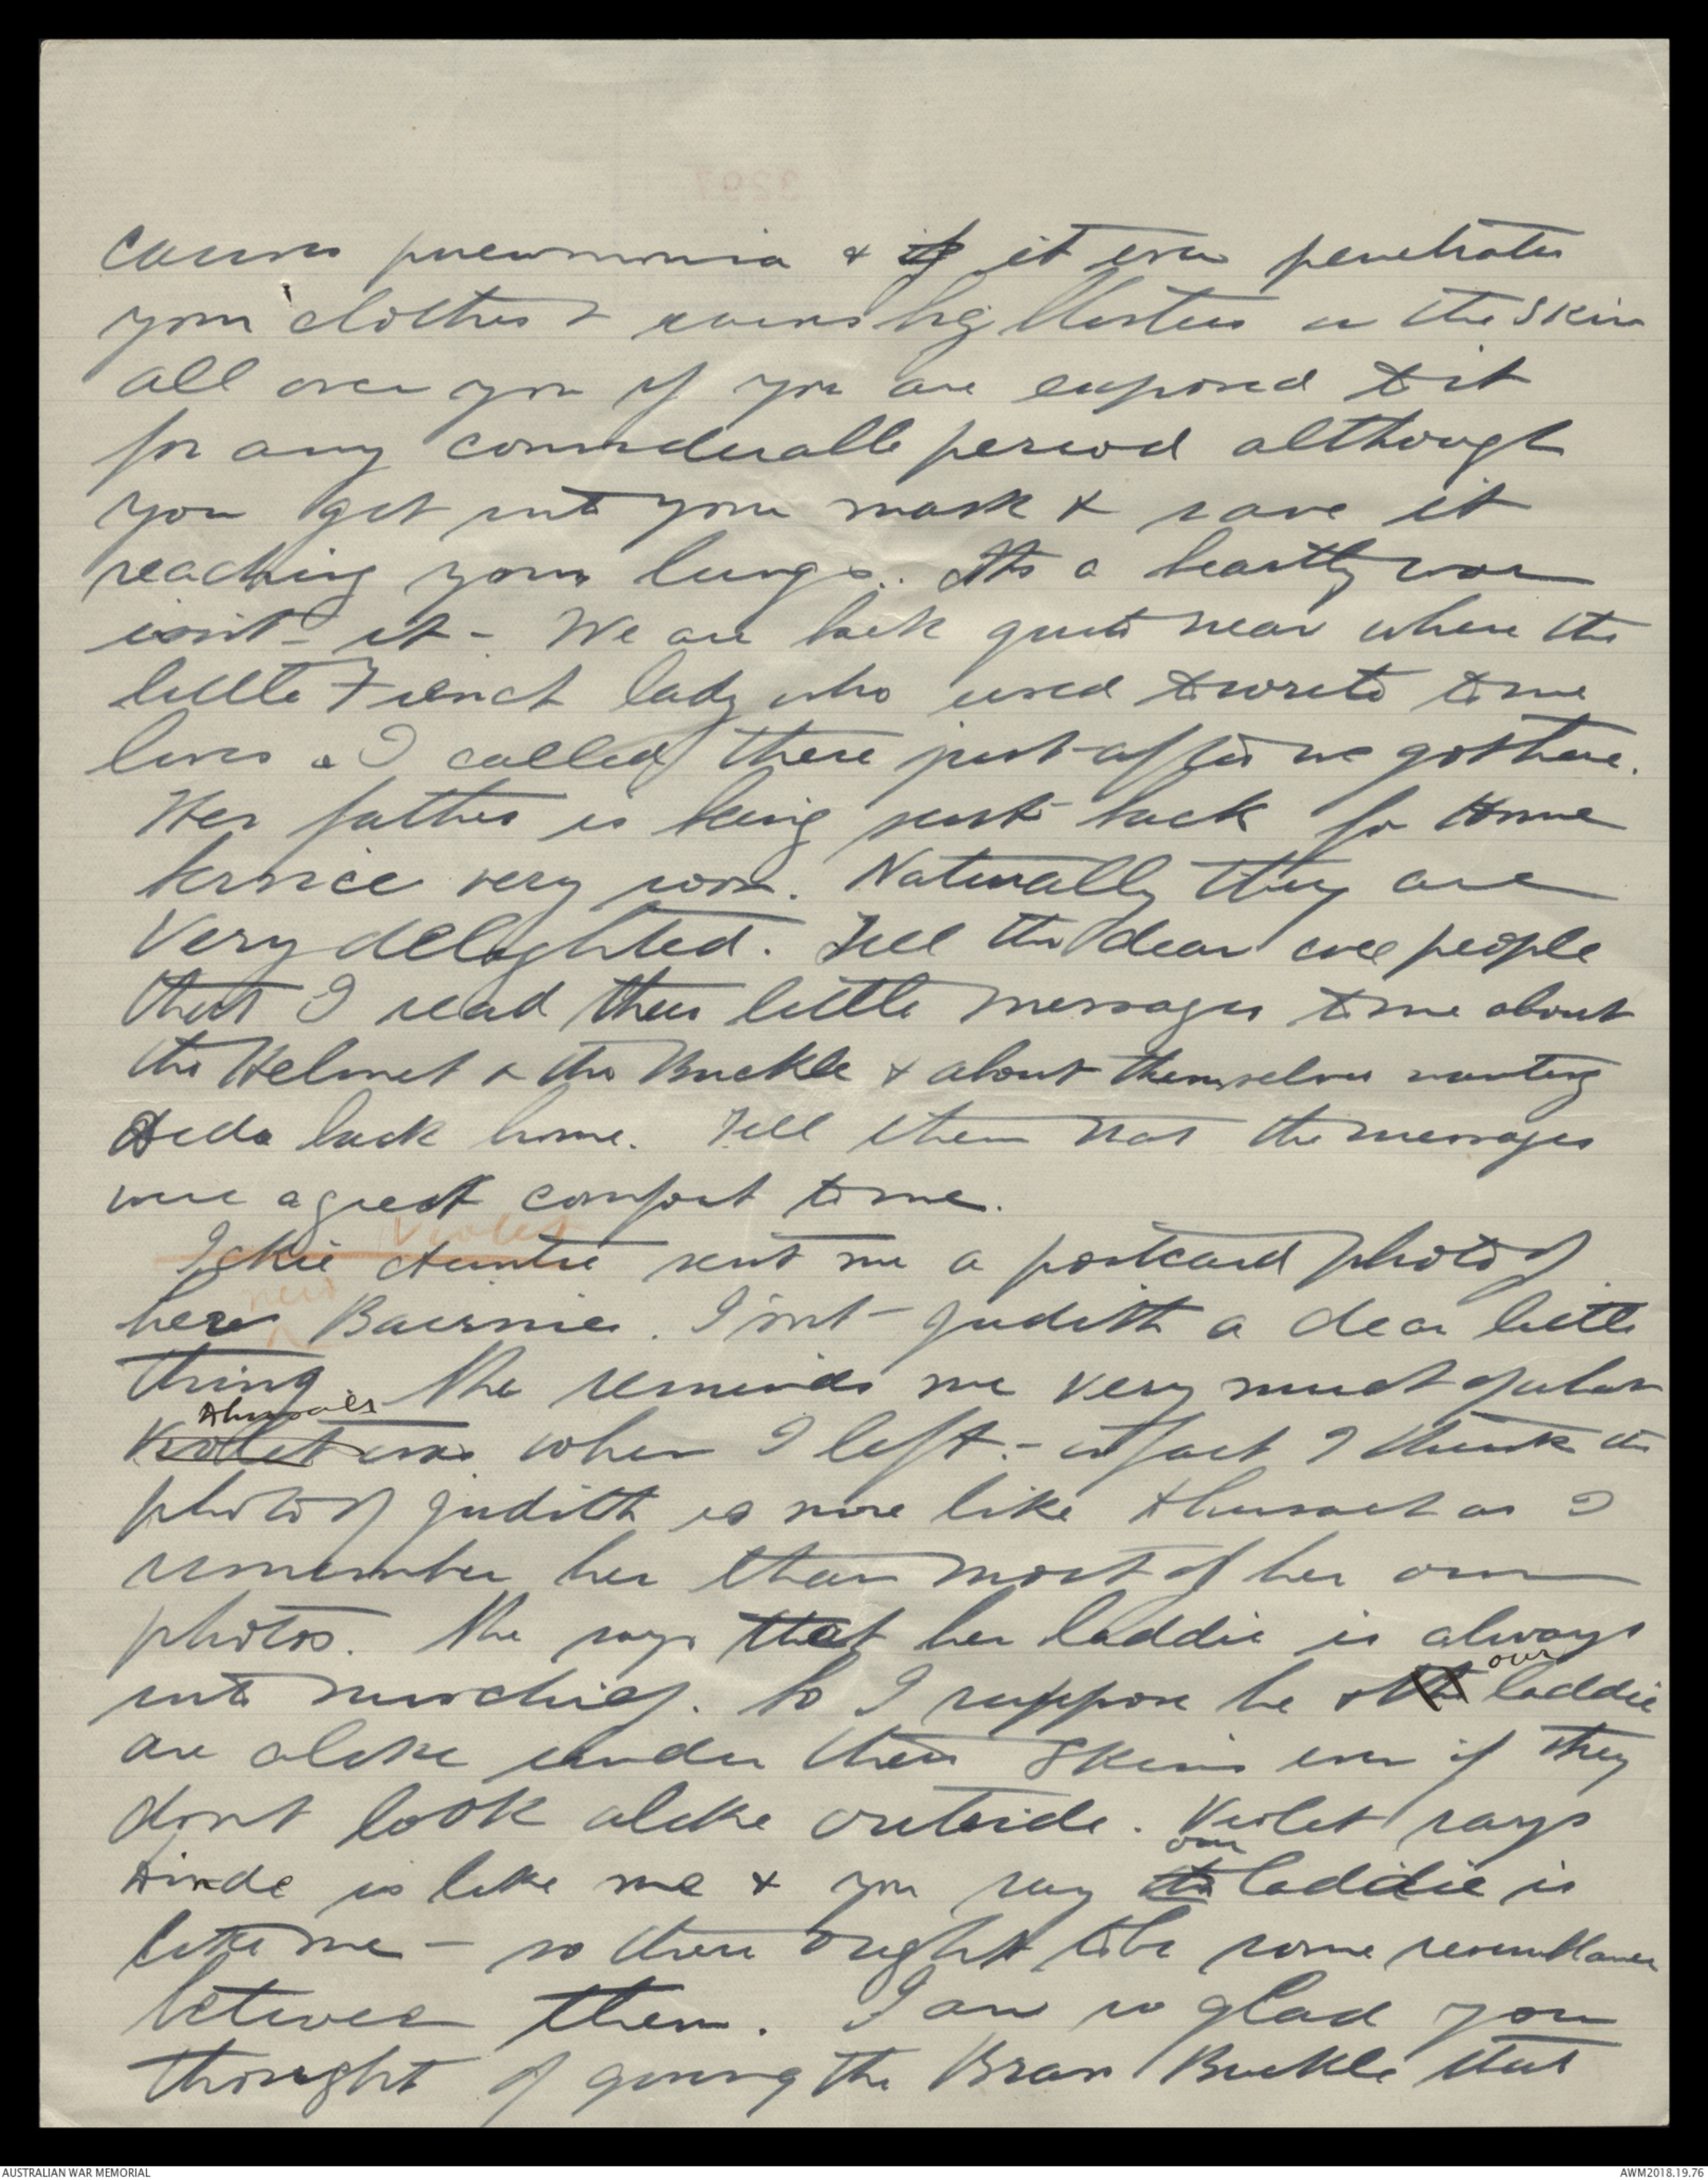 causes pneumonia & if it even penetrates
your clothes & raises big blisters on the skin
all over you if you are exposed to it
for any considerable period although
you get into your mask & save it
reaching your lungs. Its a beastly war
isn't it - We are back quite near where the
little French lady who used to write to me
lives & I called there just after we got here.
Her father is being sent back for Home
Service very soon. Naturally they are
very delighted. Tell the dear wee people
that I read their little messages to me about
the Helmet & the Buckle & about themselves wanting
Dida back home. Tell them that the messages
were a great comfort to me.
Violet
Ickie Auntie sent me a postcard photo of
her Bairnies. Isn't Judith a dear little
thing. She reminds me very much of what
Violet was when I left - in fact I think the
photo of Judith is more like as I
remember her than most of her own
photos. She says that her laddie is always
into mischief. So I suppose he & our laddie
are alike under their skins even if they
dont look alike outside. Violet says
is like me & you say our laddie is
like me - so there ought to be some resemblance
between them. I am so glad you
thought of giving the Brass Buckle that
AUSTRALIAN WAR MEMORIAL
AWM2018.19.76